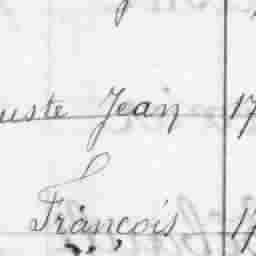 uste Jean 17
François 17